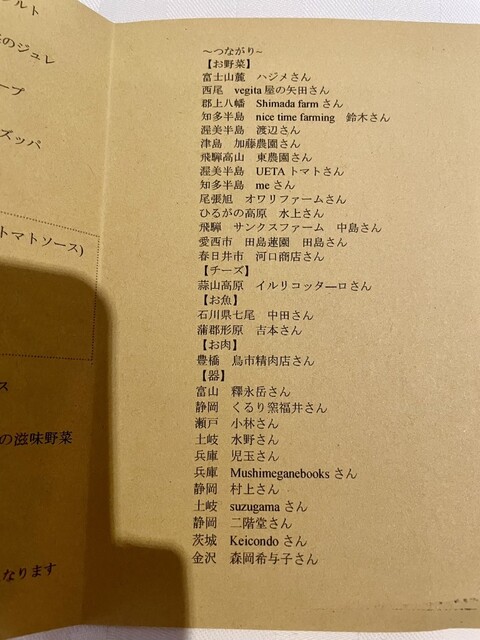 ルト
のジュレ
ープ
ズッパ
トマトソース)
ス
の滋味野菜
なります
~つながり~
【お野菜】
富士山麓 ハジメさん
西尾 vegita屋の矢田さん
郡上八幡 Shimada farmさん
知多半島 nice time farming 鈴木さん
渥美半島 渡辺さん
津島 加藤農園さん
飛騨高山 東農園さん
渥美半島 UETAトマトさん
知多半島 meさん
尾張旭 オワリファームさん
ひるがの高原 水上さん
飛騨 サンクスファーム 中島さん
愛西市 田島蓮園 田島さん
春日井市 河口商店さん
【チーズ】
蒜山高原 イルリコッターロさん
【お魚】
石川県七尾 中田さん
蒲郡形原 吉本さん
【お肉】
豊橋 鳥市精肉店さん
【器】
富山 釋永岳さん
静岡 くるり窯福井さん
瀬戸 小林さん
土岐 水野さん
兵庫 児玉さん
兵庫 Mushimeganebooksさん
静岡 村上さん
土岐 suzugamaさん
静岡 二階堂さん
茨城 Keicondoさん
金沢 森岡希与子さん